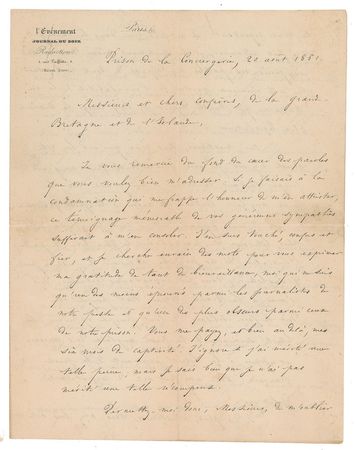 l'Événement
JOURNAL DU SOIR
Rédaction
Paris
Prison de la Conciergerie, 20 août 1851.
Messieurs et chers confrères, de la grande
Bretagne et de l'Irlande,
Je vous remercie du fond du cœur des paroles
que vous voulez bien m'adresser. Si je faisais à la
condamnation qui me frappe l'honneur de m'en attrister,
ce témoignage mémorable de vos généreuses sympathies
suffirait à m'en consoler. J'en suis touché, confus et
fier, et je cherche en vain des mots pour vous exprimer
ma gratitude de tant de bienveillance, moi qui ne suis
qu'un des moins éprouvés parmi les journalistes de
notre poste et qu'un des plus obscurs parmi ceux
de notre prison. Vous me payez, et bien au delà, mes
six mois de captivité. J'ignore si j'ai mérité une
telle peine, mais je sais bien que je n'ai pas
mérité une telle récompense.
Permettez-moi donc, Messieurs, de m'oublier